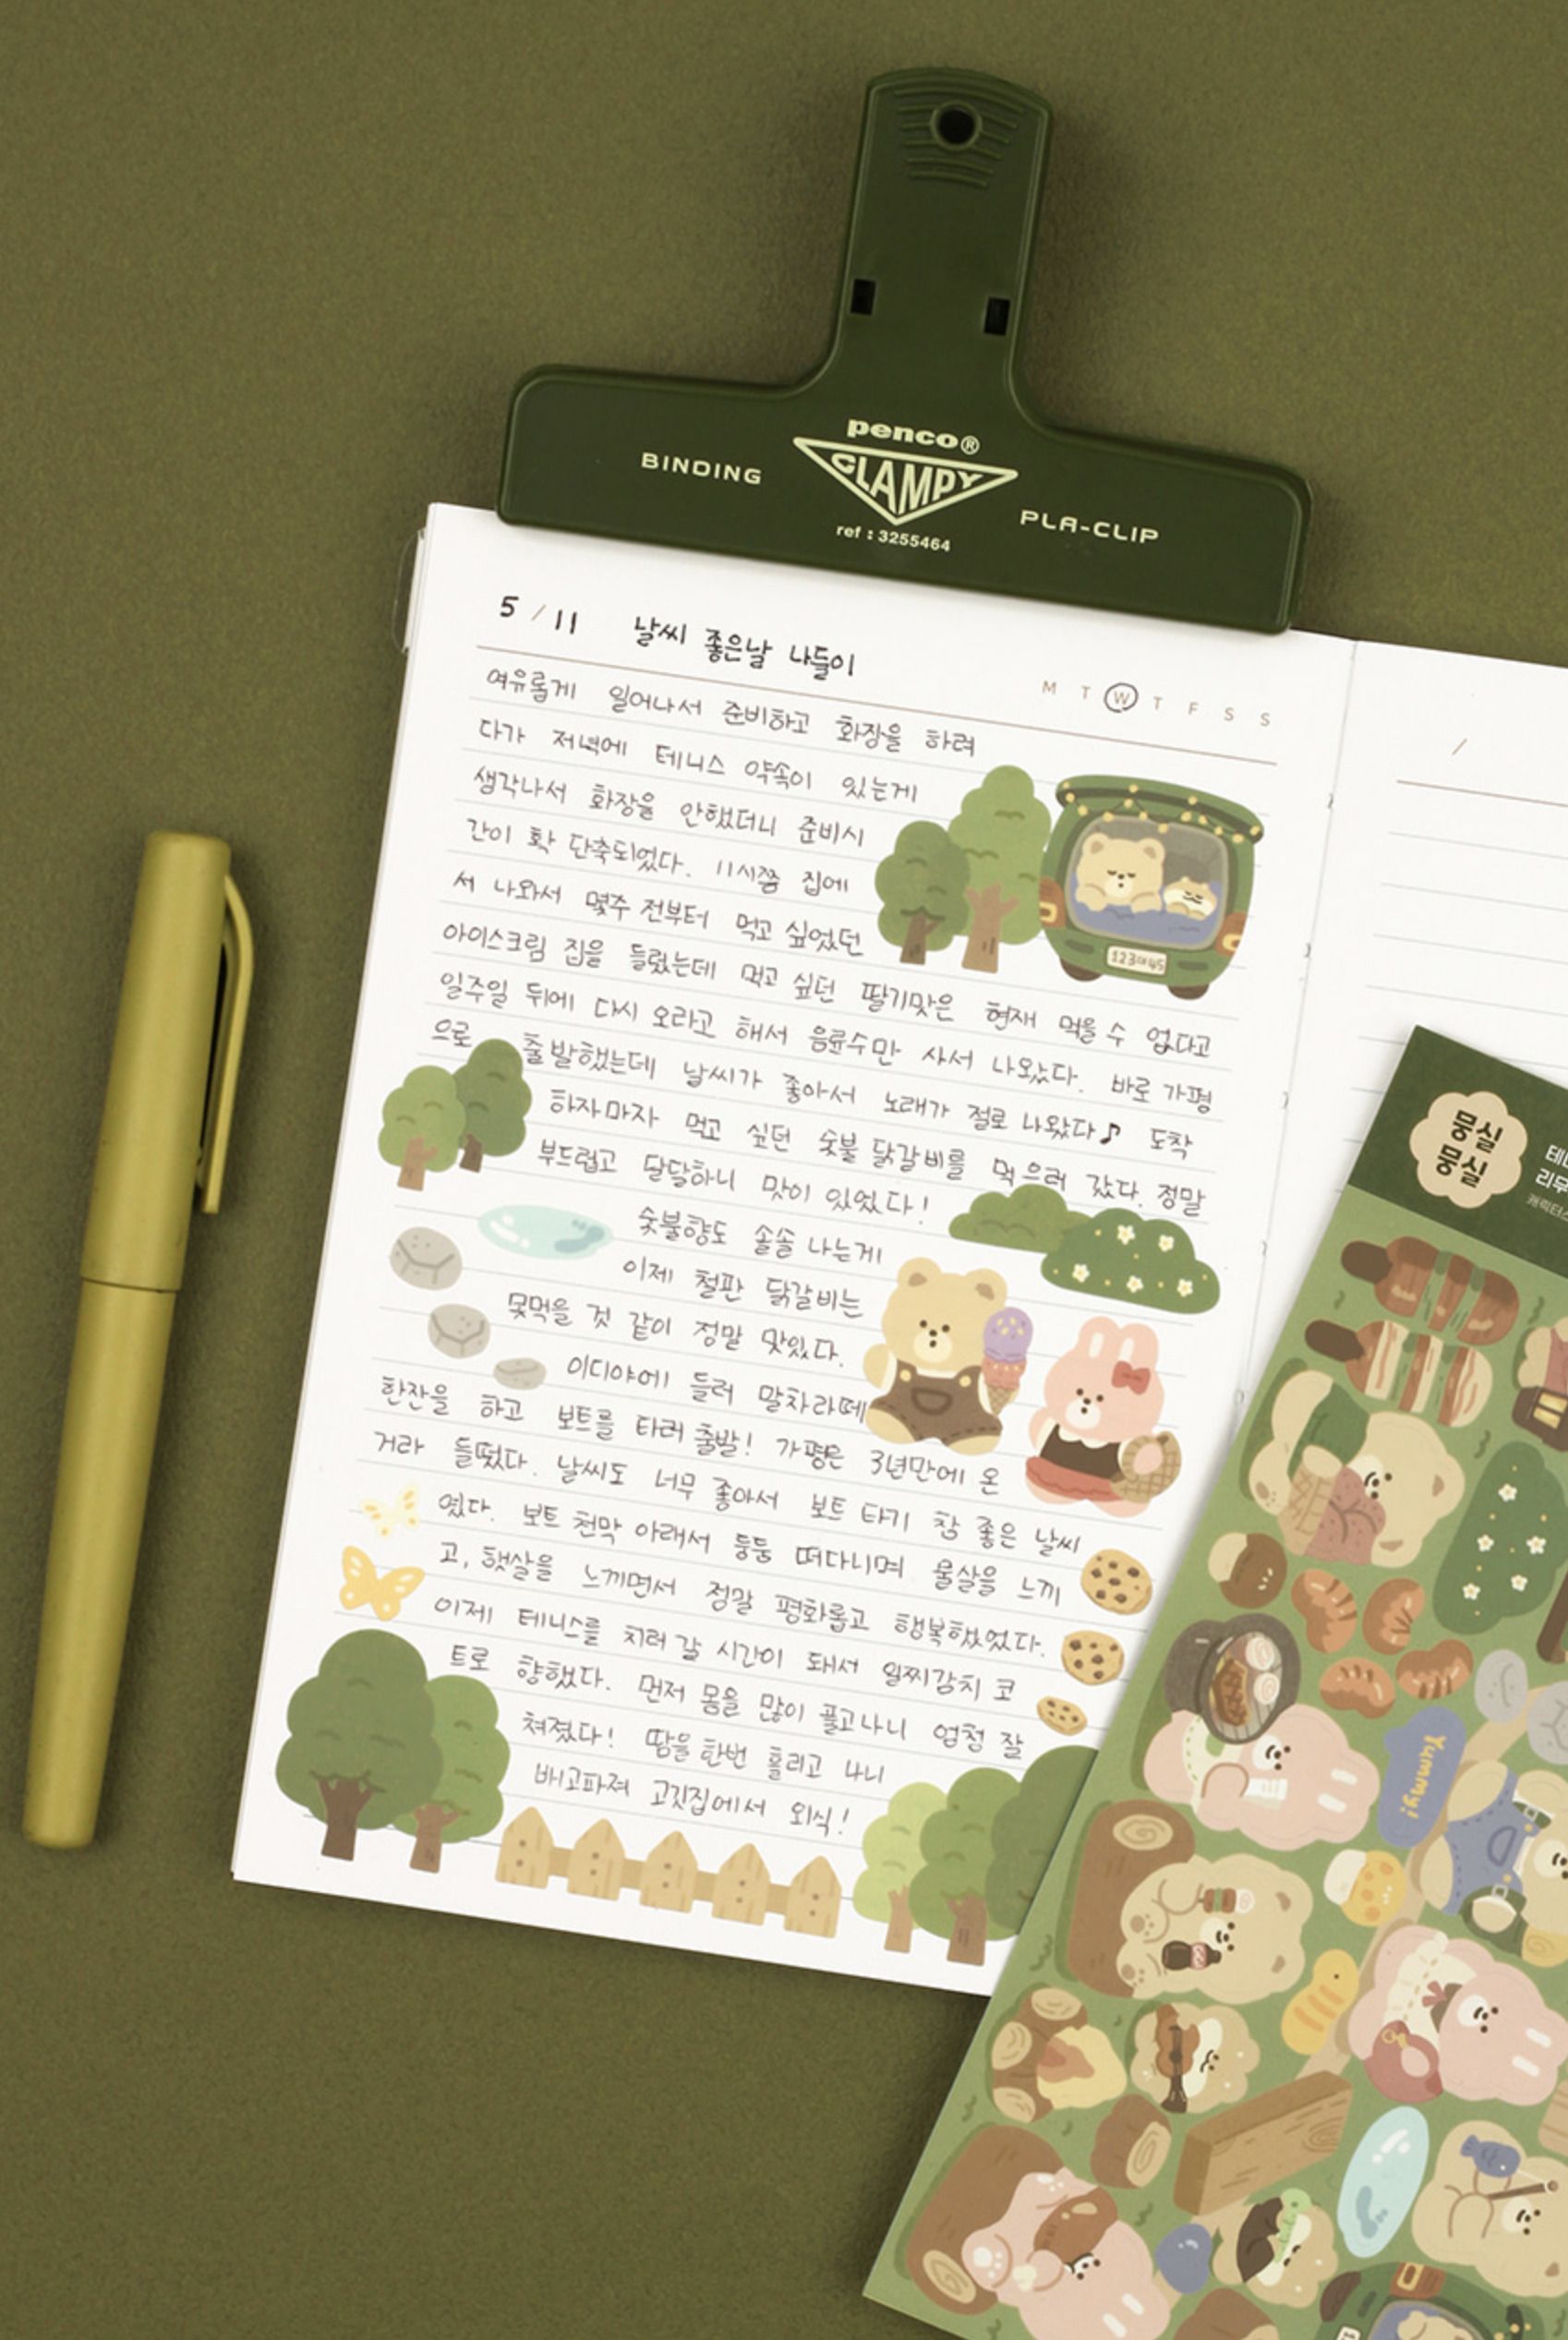 penco®
BINDING CLAMPY PLA-CLIP
ref : 3255464
5 / 11 날씨 좋은날 나들이
M T W T F S S
여유롭게 일어나서 준비하고 화장을 하려
다가 저녁에 테니스 약속이 있는게
생각나서 화장을 안했더니 준비시
간이 확 단축되었다. 11시쯤 집에
서 나와서 몇주 전부터 먹고 싶었던
아이스크림 집을 들렀는데 먹고 싶던 딸기맛은 현재 먹을 수 없다고
일주일 뒤에 다시 오라고 해서 음료수만 사서 나왔다. 바로 가평
으로 출발했는데 날씨가 좋아서 노래가 절로 나왔다♪ 도착
하자마자 먹고 싶던 숯불 닭갈비를 먹으러 갔다. 정말
부드럽고 달달하니 맛이 있었다!
숯불향도 솔솔 나는게
이제 철판 닭갈비는
못먹을 것 같이 정말 맛있다.
이디야에 들러 말차라떼
한잔을 하고 보트를 타러 출발! 가평은 3년만에 온
거라 들떴다. 날씨도 너무 좋아서 보트 타기 참 좋은 날씨
였다. 보트 천막 아래서 둥둥 떠다니며 물살을 느끼
고, 햇살을 느끼면서 정말 평화롭고 행복했었다.
이제 테니스를 치러 갈 시간이 돼서 일찌감치 코
트로 향했다. 먼저 몸을 많이 풀고나니 엄청 잘
쳐졌다! 땀을 한번 흘리고 나니
배고파져 고깃집에서 외식!
123여45
/
뭉실
뭉실
테니
리무
캐릭터스
Yummy!